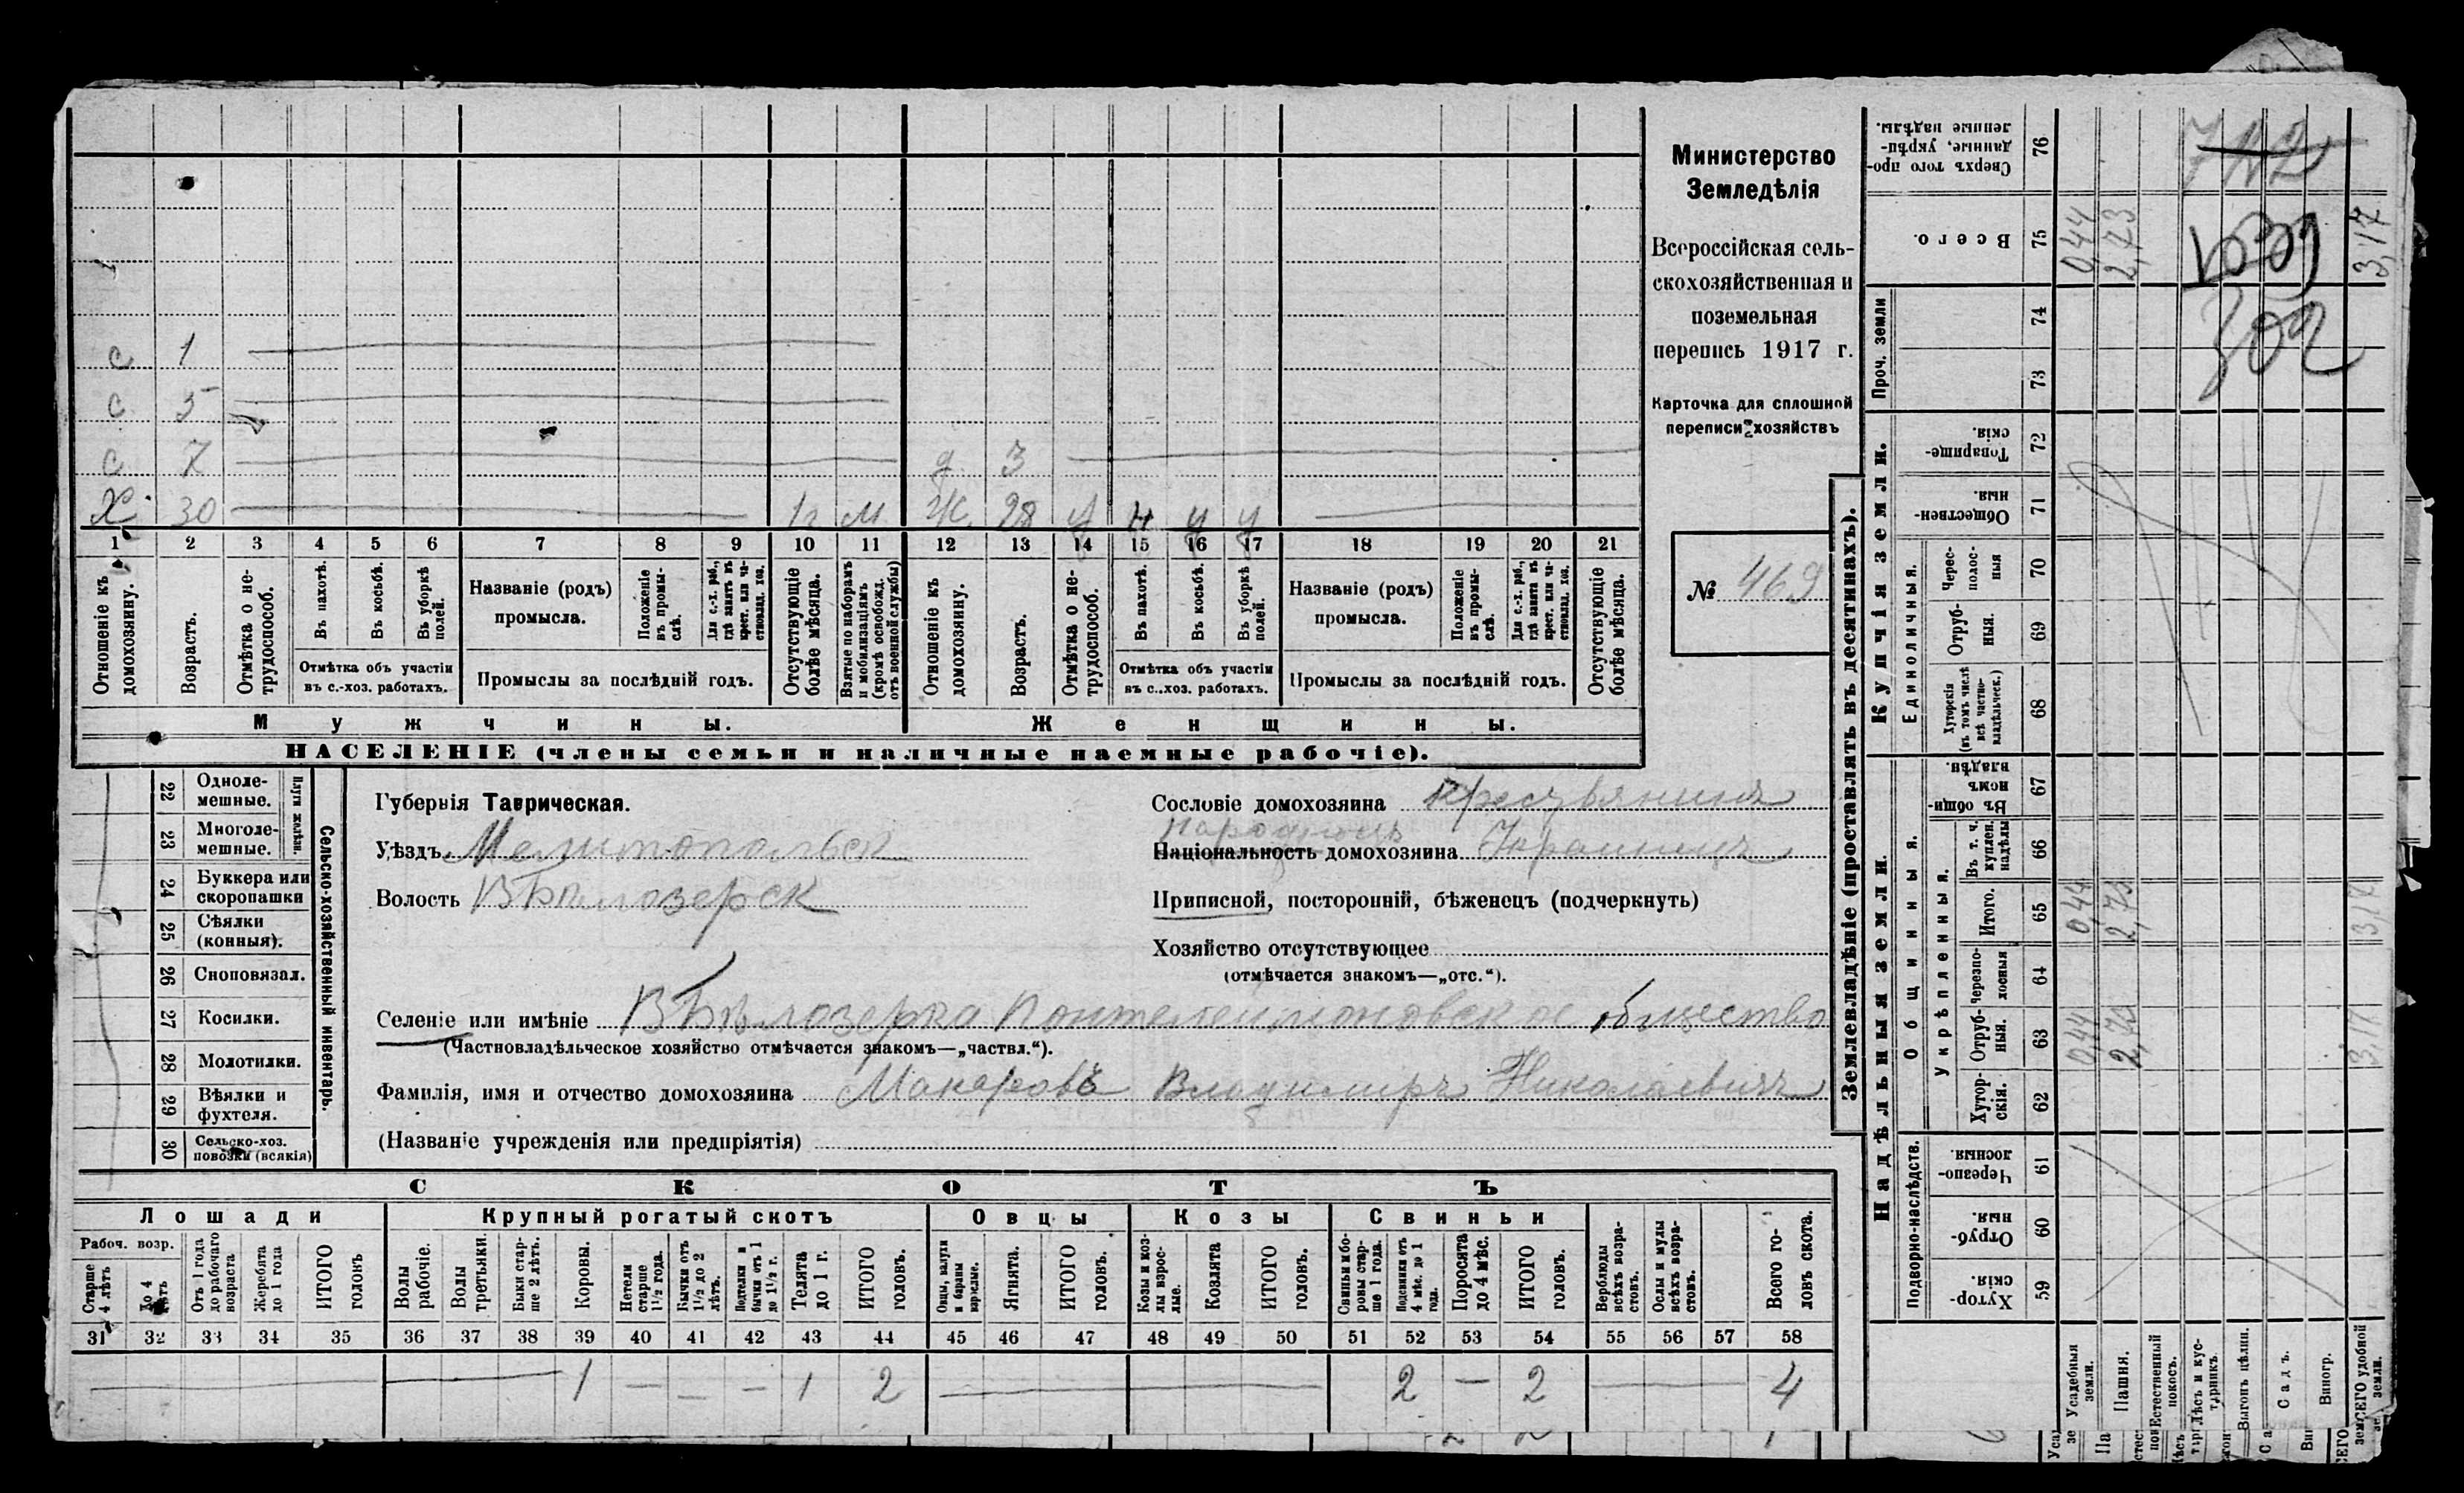 Министерство
Земледѣлія
Всероссійская сель-
скохозяйственная и
поземельная
перепись 1917 г.
Карточка для сплошной
переписи хозяйствъ
№ 469
с 1
с 5
с 7 д 3
Х 30 1г м Ж 28 н
1 2 3 4 5 6 7 8 9 10 11 12 13 14 15 16 17 18 19 20 21
Отношеніе къ домохозяину.
Возрастъ.
Отмѣтка о не-трудоспособ.
Въ пахотѣ.
Въ косьбѣ.
Въ уборкѣ полей.
Отмѣтка объ участіи
въ с.-хоз. работахъ.
Названіе (родъ)
промысла.
Положеніе въ промы-слѣ.
Для с.-х. раб., гдѣ занятъ въ крест. или ча-ствовлад. хоз.
Промыслы за послѣдній годъ.
Отсутствующіе болѣе мѣсяца.
Взятые по наборамъ и мобилизаціямъ (кромѣ освобожд. отъ военной службы)
Отношеніе къ домохозяину.
Возрастъ.
Отмѣтка о не-трудоспособ.
Въ пахотѣ.
Въ косьбѣ.
Въ уборкѣ полей.
Отмѣтка объ участіи
въ с..хоз. работахъ.
Названіе (родъ)
промысла.
Положеніе въ промы-слѣ.
Для с.-х. раб., гдѣ занятъ въ крест. или ча-ствовлад. хоз.
Промыслы за послѣдній годъ.
Отсутствующіе болѣе мѣсяца.
Мужчины.
Женщины.
НАСЕЛЕНІЕ (члены семьи и наличные наемные рабочіе).
Сельско-хозяйственный инвентарь.
Плуги желѣзн.
22 Одноле-мешные.
23 Многоле-мешные.
24 Буккера или скоропашки
25 Сѣялки (конныя).
26 Сноповязал.
27 Косилки.
28 Молотилки.
29 Вѣялки и фухтеля.
30 Сельско-хоз. повозки (всякія)
Губернія Таврическая.
Уѣздъ Мелитопольск
Волость ВБѣлозерск
Селеніе или имѣніе ВБѣлозерка Пантелеимоновское общество
(Частновладѣльческое хозяйство отмѣчается знакомъ—„частвл.“).
Фамилія, имя и отчество домохозяина Макаровъ Владимиръ Николаевичъ
(Названіе учрежденія или предпріятія)
Сословіе домохозяина крестьянинъ
Народность
Національность домохозяина Украинецъ
Приписной, посторонній, бѣженецъ (подчеркнуть)
Хозяйство отсутствующее
(отмѣчается знакомъ—„отс.“).
СКОТЪ
Лошади
Крупный рогатый скотъ
Овцы
Козы
Свиньи
Рабоч. возр.
Старше 4 лѣтъ
До 4 лѣтъ
Отъ 1 года до рабочаго возраста
Жеребята до 1 года
ИТОГО головъ
Волы рабочіе.
Волы третьяки.
Быки стар-ше 2 лѣтъ.
Коровы.
Нетели старше 1½ года.
Бычки отъ 1½ до 2 лѣтъ.
Подтелки и бычки отъ 1 до 1½ г.
Телята до 1 г.
ИТОГО головъ.
Овцы, валухи и бараны взрослые.
Ягнята.
ИТОГО головъ.
Козы и коз-лы взрос-лые.
Козлята
ИТОГО головъ.
Свиньи и бо-ровы стар-ше 1 года.
Подсвинки отъ 4 мѣс. до 1 года.
Поросята до 4 мѣс.
ИТОГО головъ.
Верблюды всѣхъ возра-стовъ.
Ослы и мулы всѣхъ возра-стовъ.
Всего го-ловъ скота.
31 32 33 34 35 36 37 38 39 40 41 42 43 44 45 46 47 48 49 50 51 52 53 54 55 56 57 58
1 — — — 1 2 2 — 2 4
Землевладѣніе (проставлять въ десятинахъ).
Надѣльныя земли.
Купчія земли.
Проч. земли
Подворно-наслѣдств.
Общинныя.
Укрѣпленныя.
Единоличныя.
Хутор-скія. 59
Отруб-ныя. 60
Черезпо-лосныя. 61
Хутор-скія. 62
Отруб-ныя. 63 0,44 2,73 3,17
Черезпо-лосныя 64
Итого. 65 0,44 2,73 3,17
Въ т. ч. куплен. надѣлы 66
Въ общин-номъ владѣн. 67
Хуторскія (въ томъ числѣ всѣ частно-владѣльческ.) 68
Отруб-ныя. 69
Черес-полос-ныя 70
Обществен-ныя. 71
Товарище-скія. 72
73
74
Всего. 75 0,44 2,73 3,17
Сверхъ того про-данные, укрѣп-ленные надѣлы. 76
302
Усадебныя земли.
Пашня.
Естественный покосъ.
Лѣсъ и кус-тарникъ.
Выгонъ цѣлин.
Садъ.
Виногр.
ВСЕГО удобной земли.